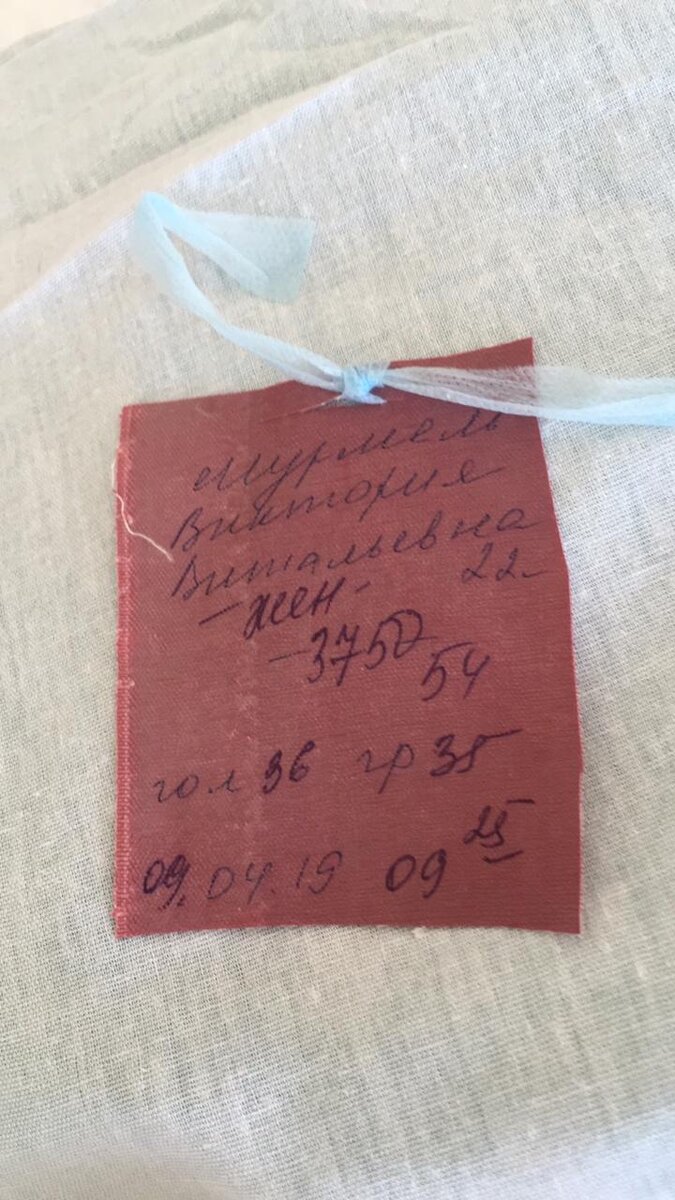 Мурмель
Виктория
Витальевна
-жен- 22-
-3750
54
гол 36 гр 35
09.04.19 09 25